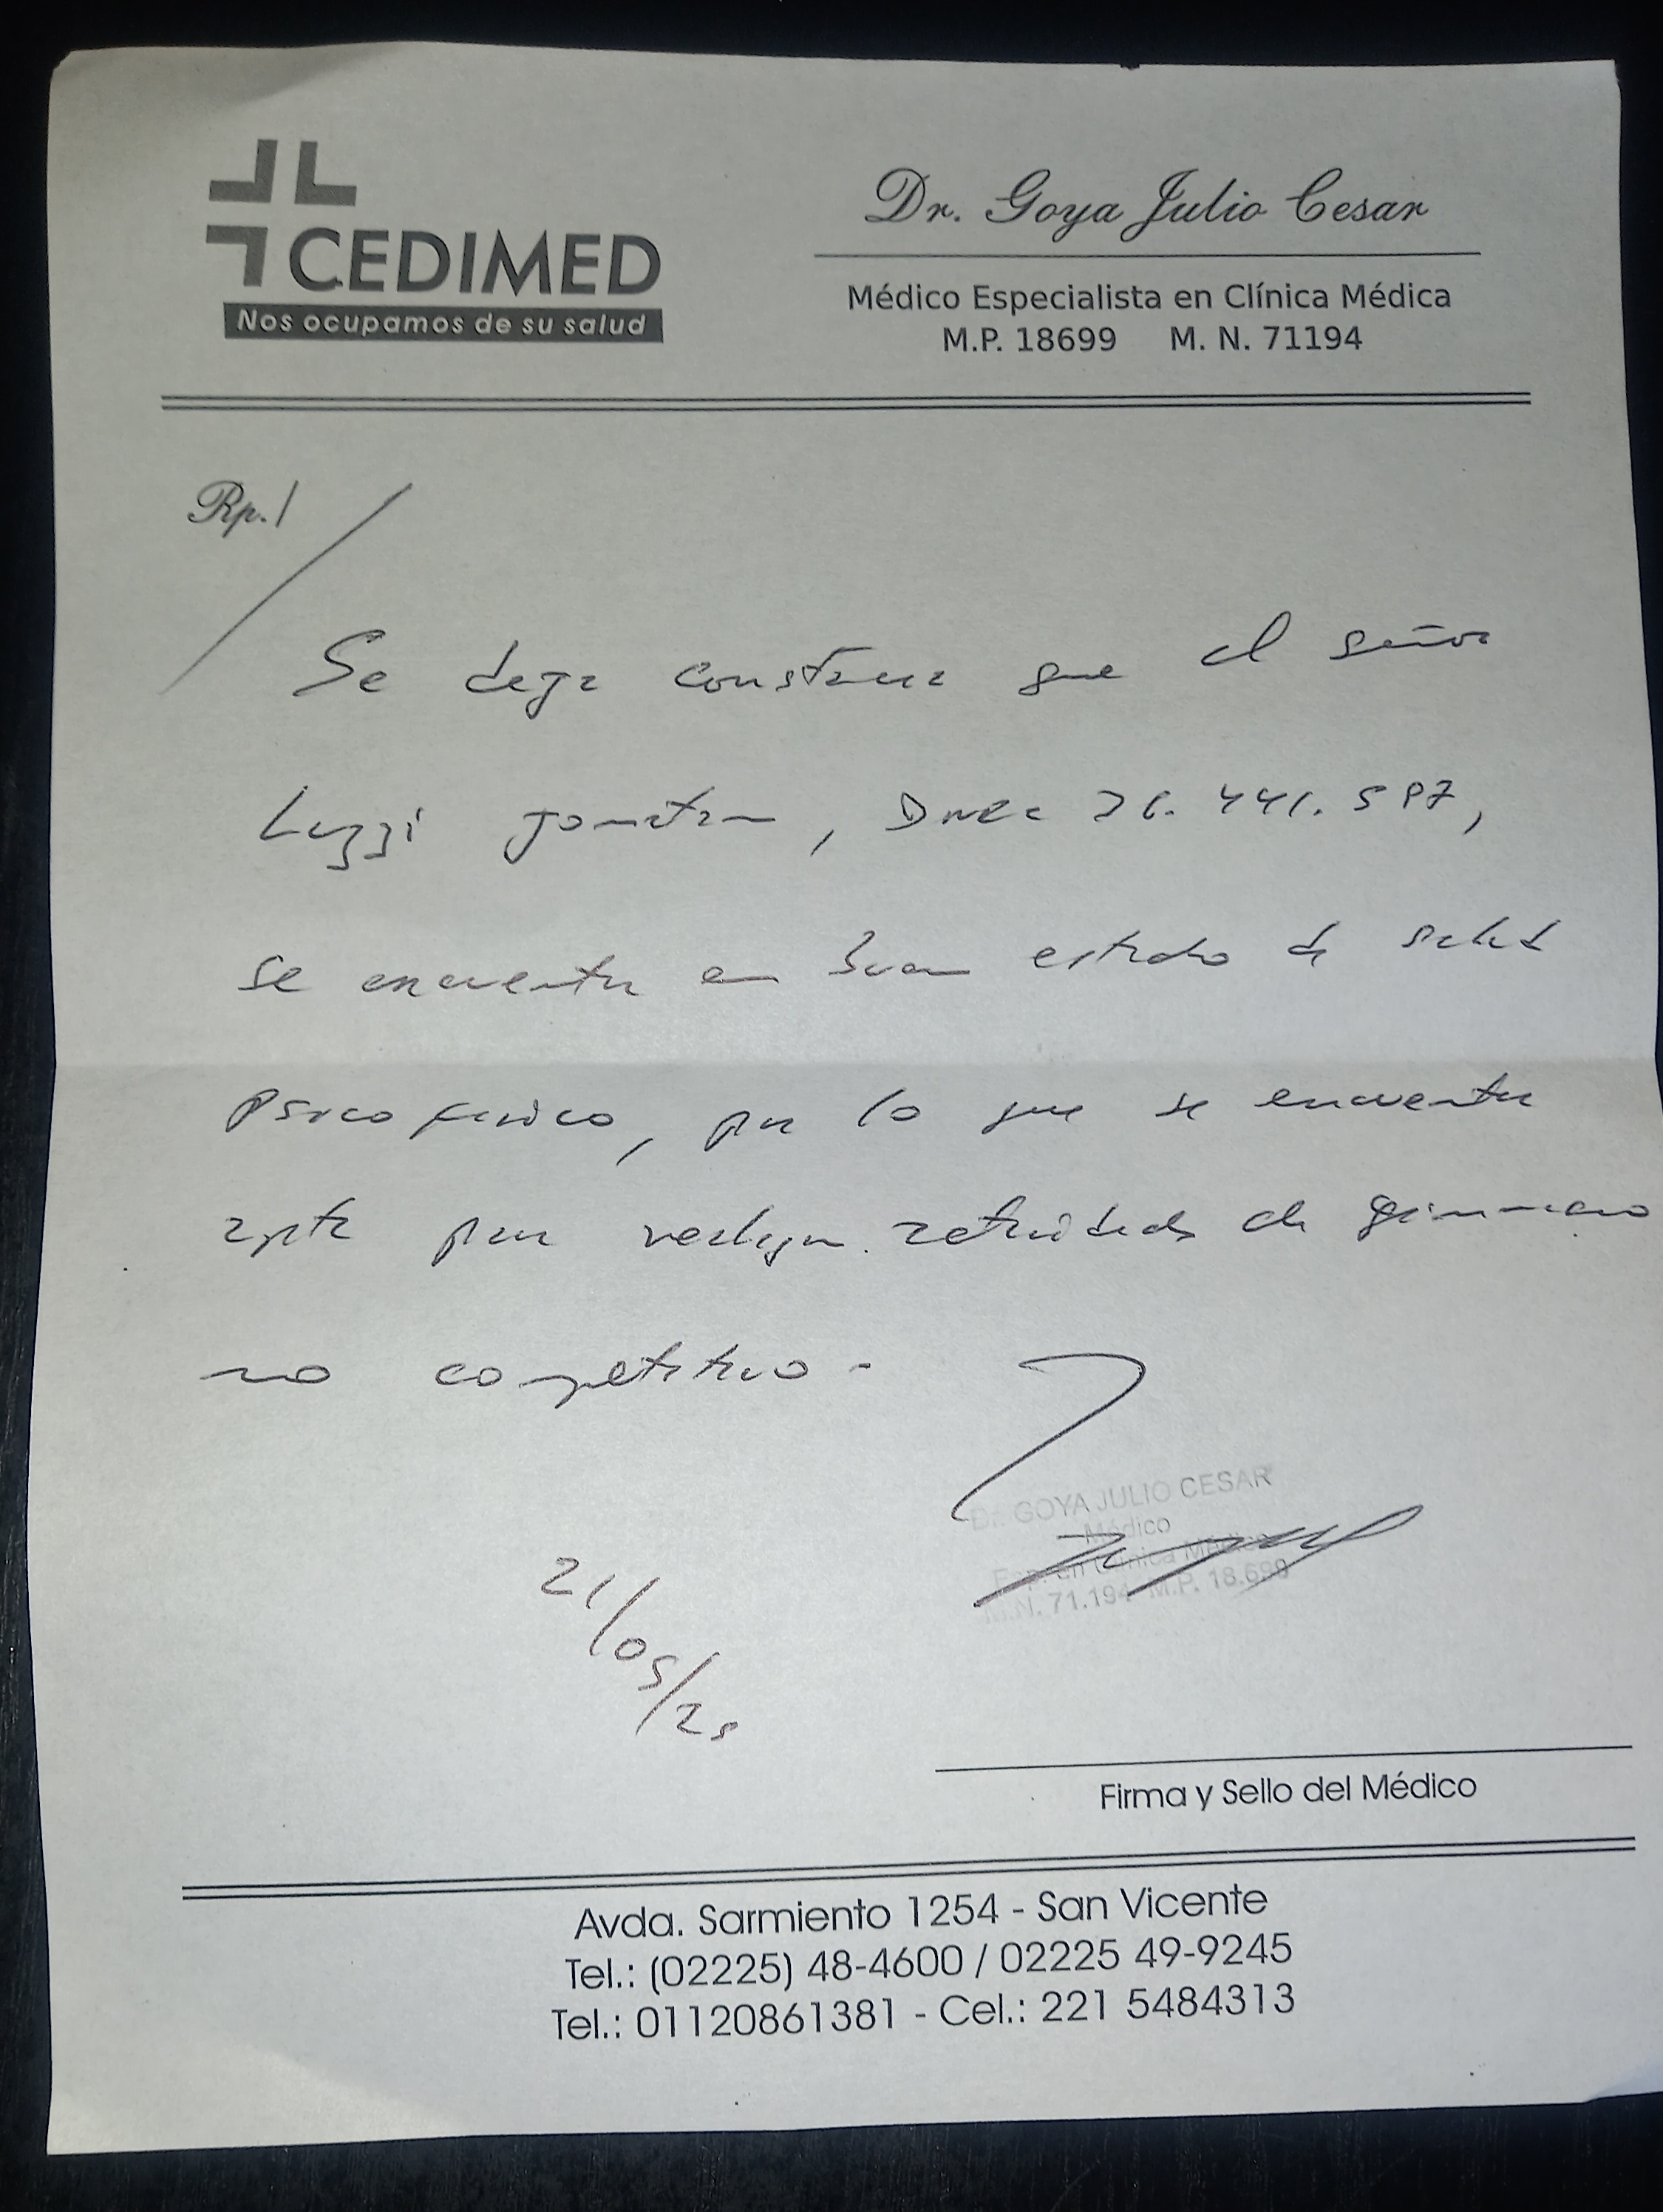 CEDIMED
Nos ocupamos de su salud
Dr. Goya Julio Cesar
Médico Especialista en Clínica Médica
M.P. 18699 M. N. 71194
Rp./
Se deja constancia que el señor
Luzzi Jonatan,
se encuentra en buen estado de salud
psicofisico, por lo que se encuentra
apto para realizar actividades de gimnasio
no competitivo -
Dr. GOYA JULIO CESAR
Médico
Esp. en Clínica Médica
M.N. 71.194 M.P. 18.699
21/05/25
Firma y Sello del Médico
Avda. Sarmiento 1254 - San Vicente
Tel.: (02225) 48-4600 / 02225 49-9245
Tel.: 01120861381 - Cel.: 221 5484313